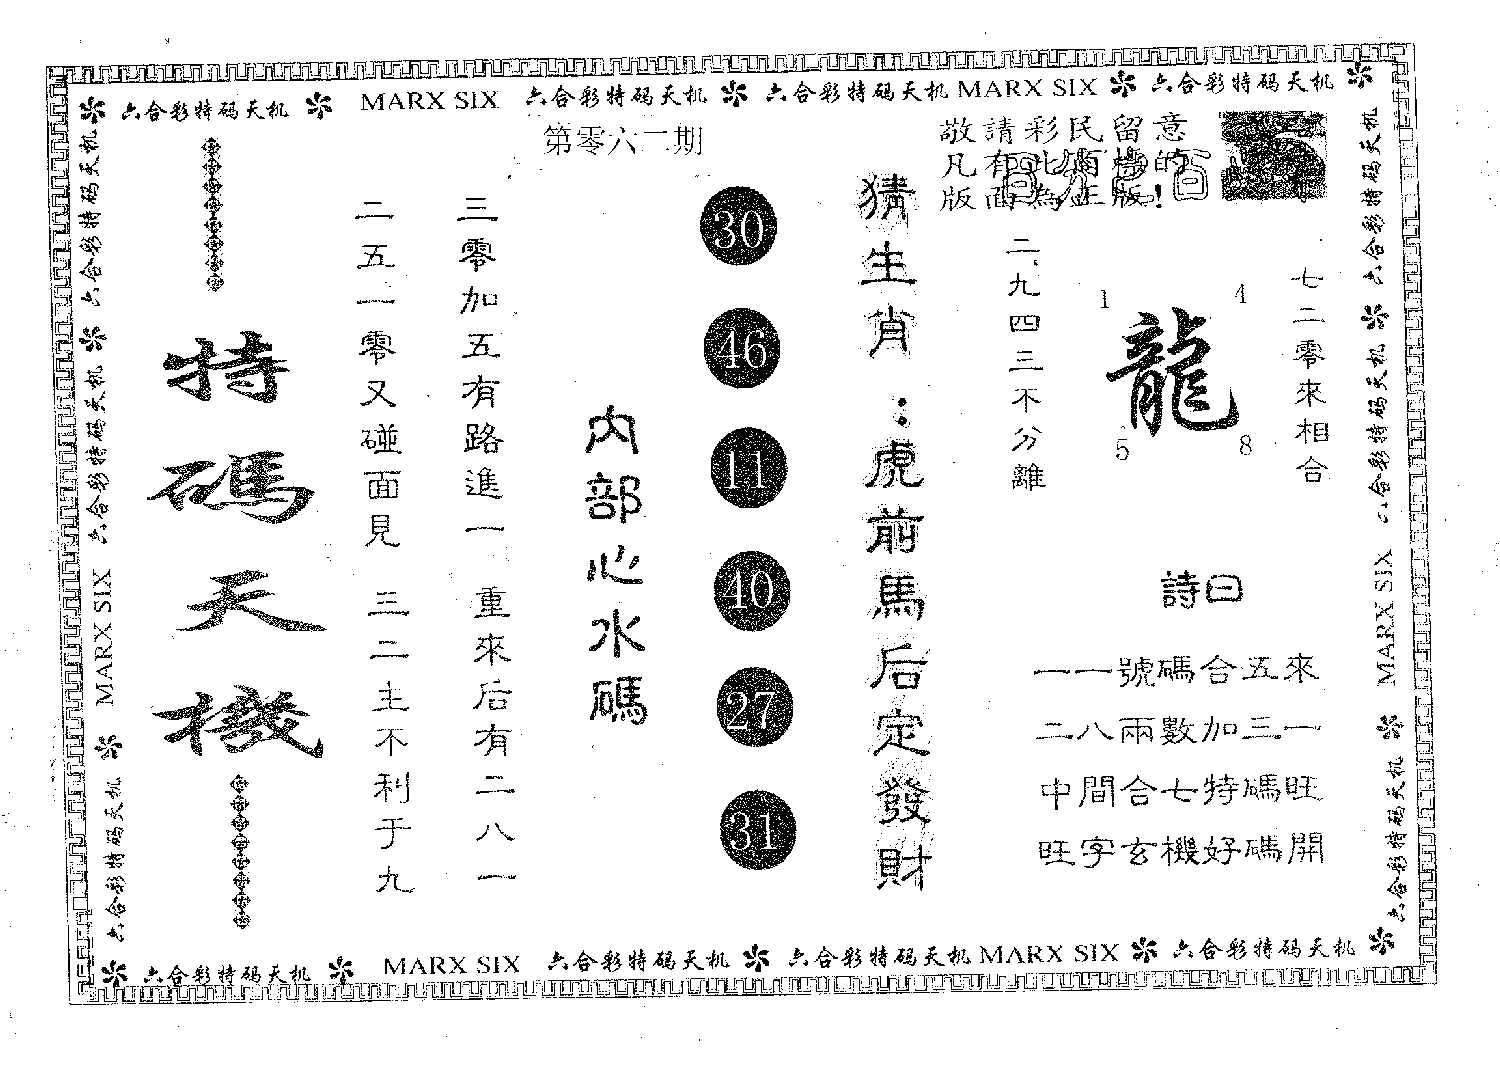 六合彩特码天机 MARX SIX 六合彩特码天机 六合彩特码天机 MARX SIX 六合彩特码天机
第零六二期
敬請彩民留意
凡有此的
版面為正版!
七二零來相合
1 4
龍
5 8
二九四三不分離
詩曰
一一號碼合五來
二八兩數加三一
中間合七特碼旺
旺字玄機好碼開
猜生肖：虎前馬后定發財
30
46
11
40
27
31
内部心水碼
三零加五有路進一 重來后有二八一
二五一零又碰面見 三二主不利于九
特碼天機
六合彩特码天机 六合彩特码天机 MARX SIX 六合彩特码天机
六合彩特码天机 六合彩特码天机 MARX SIX 六合彩特码天机
六合彩特码天机 MARX SIX 六合彩特码天机 六合彩特码天机 MARX SIX 六合彩特码天机